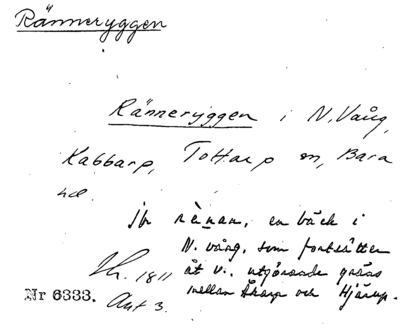 Ränneryggen
Ränneryggen i N. Vång,
Kabbarp, Tottarp sn, Bara
hd.
jfr rènan, en bäck i
N. vång, som fortsätter
åt v., utgörande gräns
mellan Åkarp och Hjärup.
1811
Nr 6333. Akt 3.